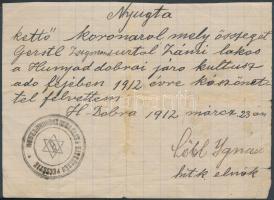 Nyugta
kettő koronáról mely összegét
Gerstl Zsigmond urtól Zámi lakos
a Hunyad dobrai járo kultusz
ado fejében 1912 évre köszönet
tel felvettem
H Dobra 1912 márcz. 23 án
Löbl Ignác
hitk elnök